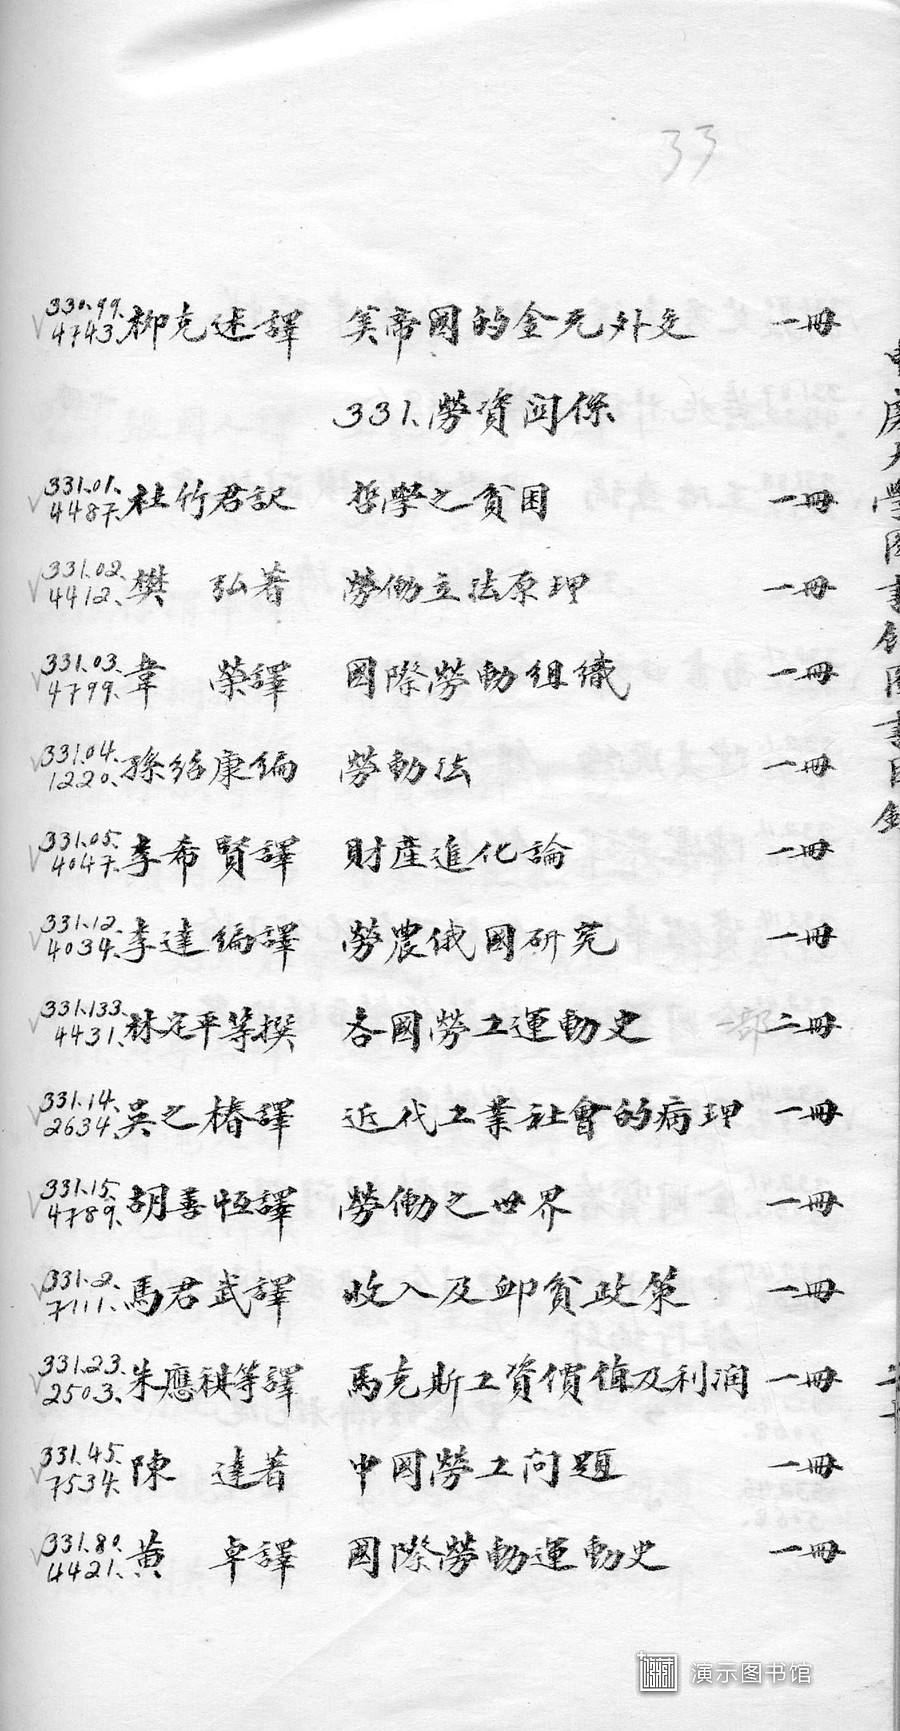 33
330.99. 4743. 柳克述譯 美帝國的金元外交 一冊
331. 勞資関係
331.01. 4487. 杜竹君訳 哲學之貧困 一冊
331.02. 4412. 樊 弘著 勞働立法原理 一冊
331.03. 4799. 韋 榮譯 國際勞動組織 一冊
331.04. 1220. 孫紹康編 勞動法 一冊
331.05. 4047. 李希賢譯 財產進化論 一冊
331.12. 4034. 李達編譯 勞農俄國研究 一冊
331.133. 4431. 林定平等撰 各國勞工運動史 一部二冊
331.14. 2634. 吳之椿譯 近代工業社會的病理 一冊
331.15. 4789. 胡善恆譯 勞働之世界 一冊
331.2. 7111. 馬君武譯 收入及卹貧政策 一冊
331.23. 2503. 朱應祺等譯 馬克斯工資價值及利润 一冊
331.45. 7534. 陳 達著 中國勞工问題 一冊
331.80. 4421. 黄 卓譯 國際勞動運動史 一冊
大學图書館图書目錄
演示图书馆